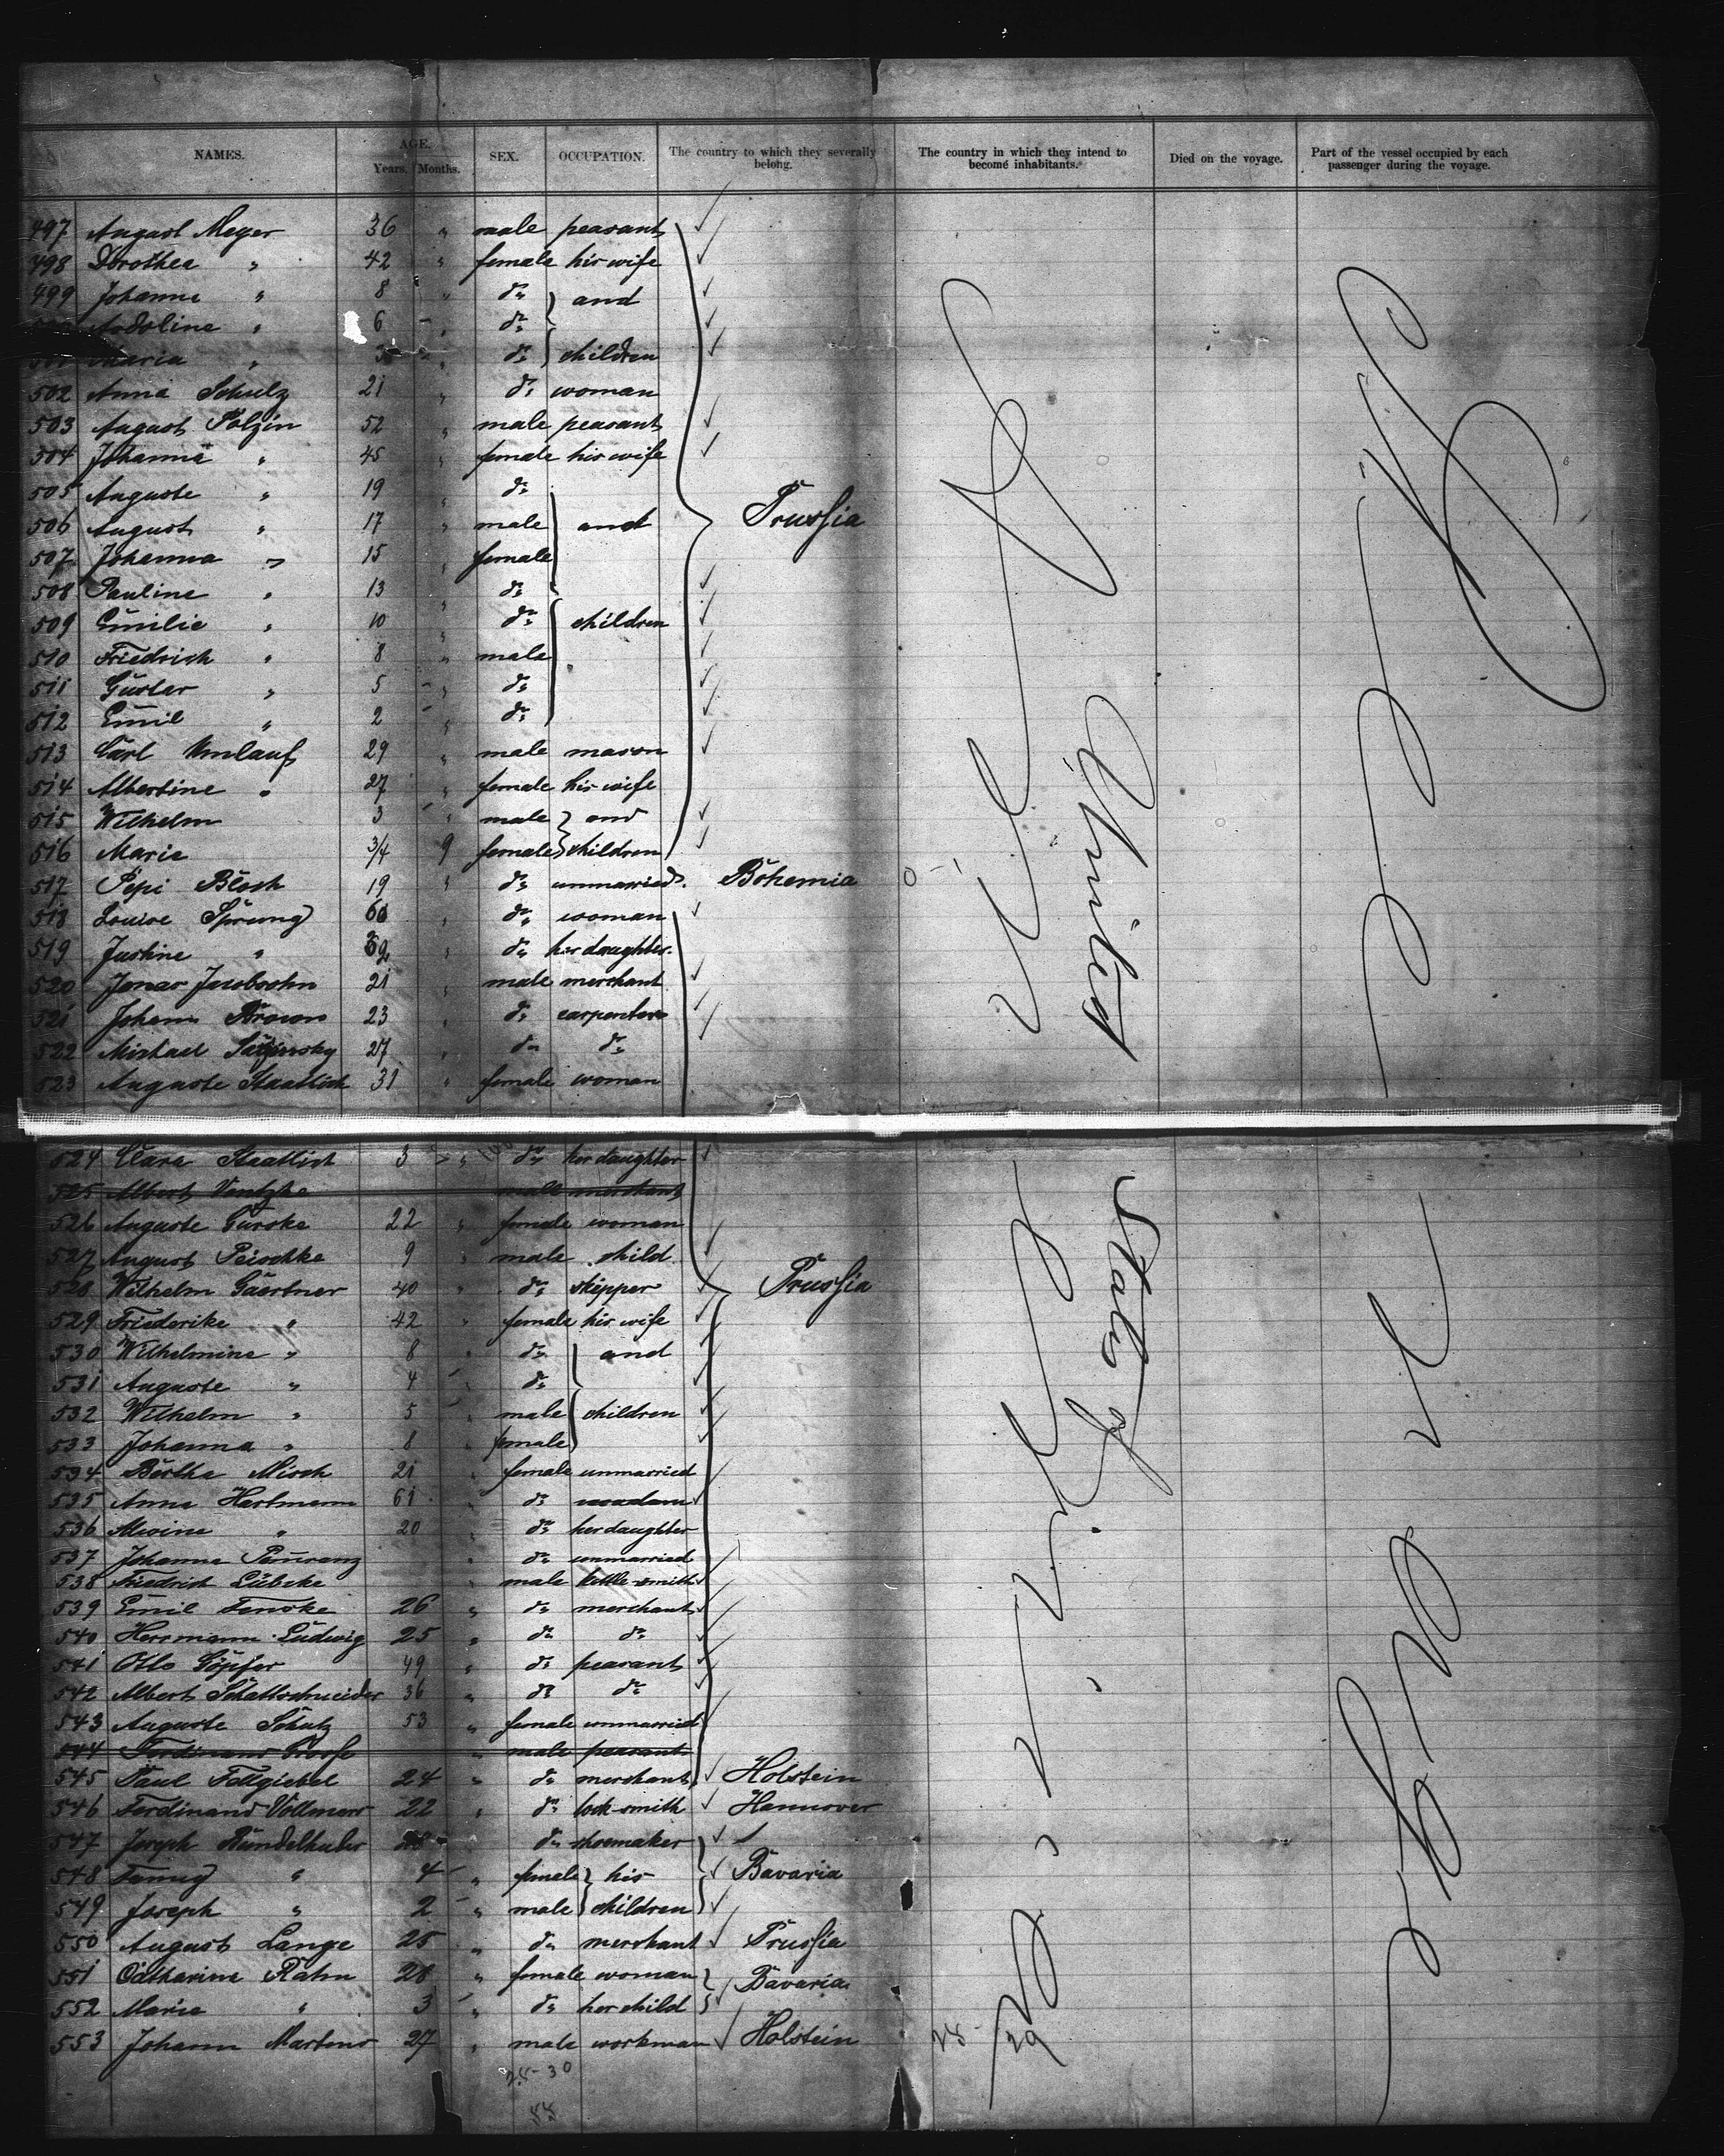 NAMES. AGE. Years. Months. SEX. OCCUPATION. The country to which they severally belong. The country in which they intend to become inhabitants. Died on the voyage. Part of the vessel occupied by each passenger during the voyage.
497 August Meyer 36 " male peasant
498 Dorothea " 42 " female his wife
499 Johanne " 8 " do and
" 6 " do
Maria " 3 " do children
502 Anna Schulz 21 " do woman
503 August Polzin 52 " male peasant
504 Johanna " 45 " female his wife
505 Auguste " 19 " do
506 August " 17 " male and Prussia
507 Johanna " 15 " female
508 Pauline " 13 " do
509 Emilie " 10 " do children
510 Friedrich " 8 " male
511 Gustav " 5 " do
512 Emil " 2 " do
513 Carl Umlauf 29 " male mason
514 Albertine " 27 " female his wife
515 Wilhelm 3 " male and
516 Marie 3/4 9 female children
517 Pepi Bloch 19 " do unmarried. Bohemia
518 Louise Sprung " do woman
519 Justine " " do her daughter.
520 Jonas Jacobsohn 21 " male merchant
521 Johann Brown 23 " do carpenter
522 Michael 27 " do do
523 Auguste Staatlich 31 " female woman
524 Clara Staatlich 3 " do her daughter
525 Albert Ventzke male merchant
526 Auguste Gurske 22 " female woman
527 August Peischke 9 " male child
528 Wilhelm Gaertner 40 " do skipper Prussia
529 Friederike " 42 " female his wife
530 Wilhelmine " 8 " do and
531 Auguste " 4 " do
532 Wilhelm " 5 " male children
533 Johanna " 8 " female
534 Bertha Misch 21 " female unmarried
535 Anna Hartmann 61 " do
536 Alwine " 20 " do her daughter
537 Johanna " do unmarried
538 Friedrich Lübcke " male kettle-smith
539 Emil Fenske 26 " do merchant
540 Herrmann Ludwig 25 " do do
541 Otto Göpfer 49 " do peasant
542 Albert Schattschneider 36 " do do
543 Auguste Schulz 53 " female unmarried
544 Ferdinand Grosse " male peasant
545 Paul Fellgiebel 24 " do merchant Holstein
546 Ferdinand Vollmer 22 " do lock-smith Hannover
547 Joseph 28 do shoemaker
548 Fanny " 4 " female his Bavaria
549 Joseph " 2 " male children
550 August Lange 25 " do merchant Prussia
551 Catharine Rahn 28 " female woman Bavaria
552 Marie " 3 " do her child
553 Johann Martens 27 " male workman Holstein
United
States of